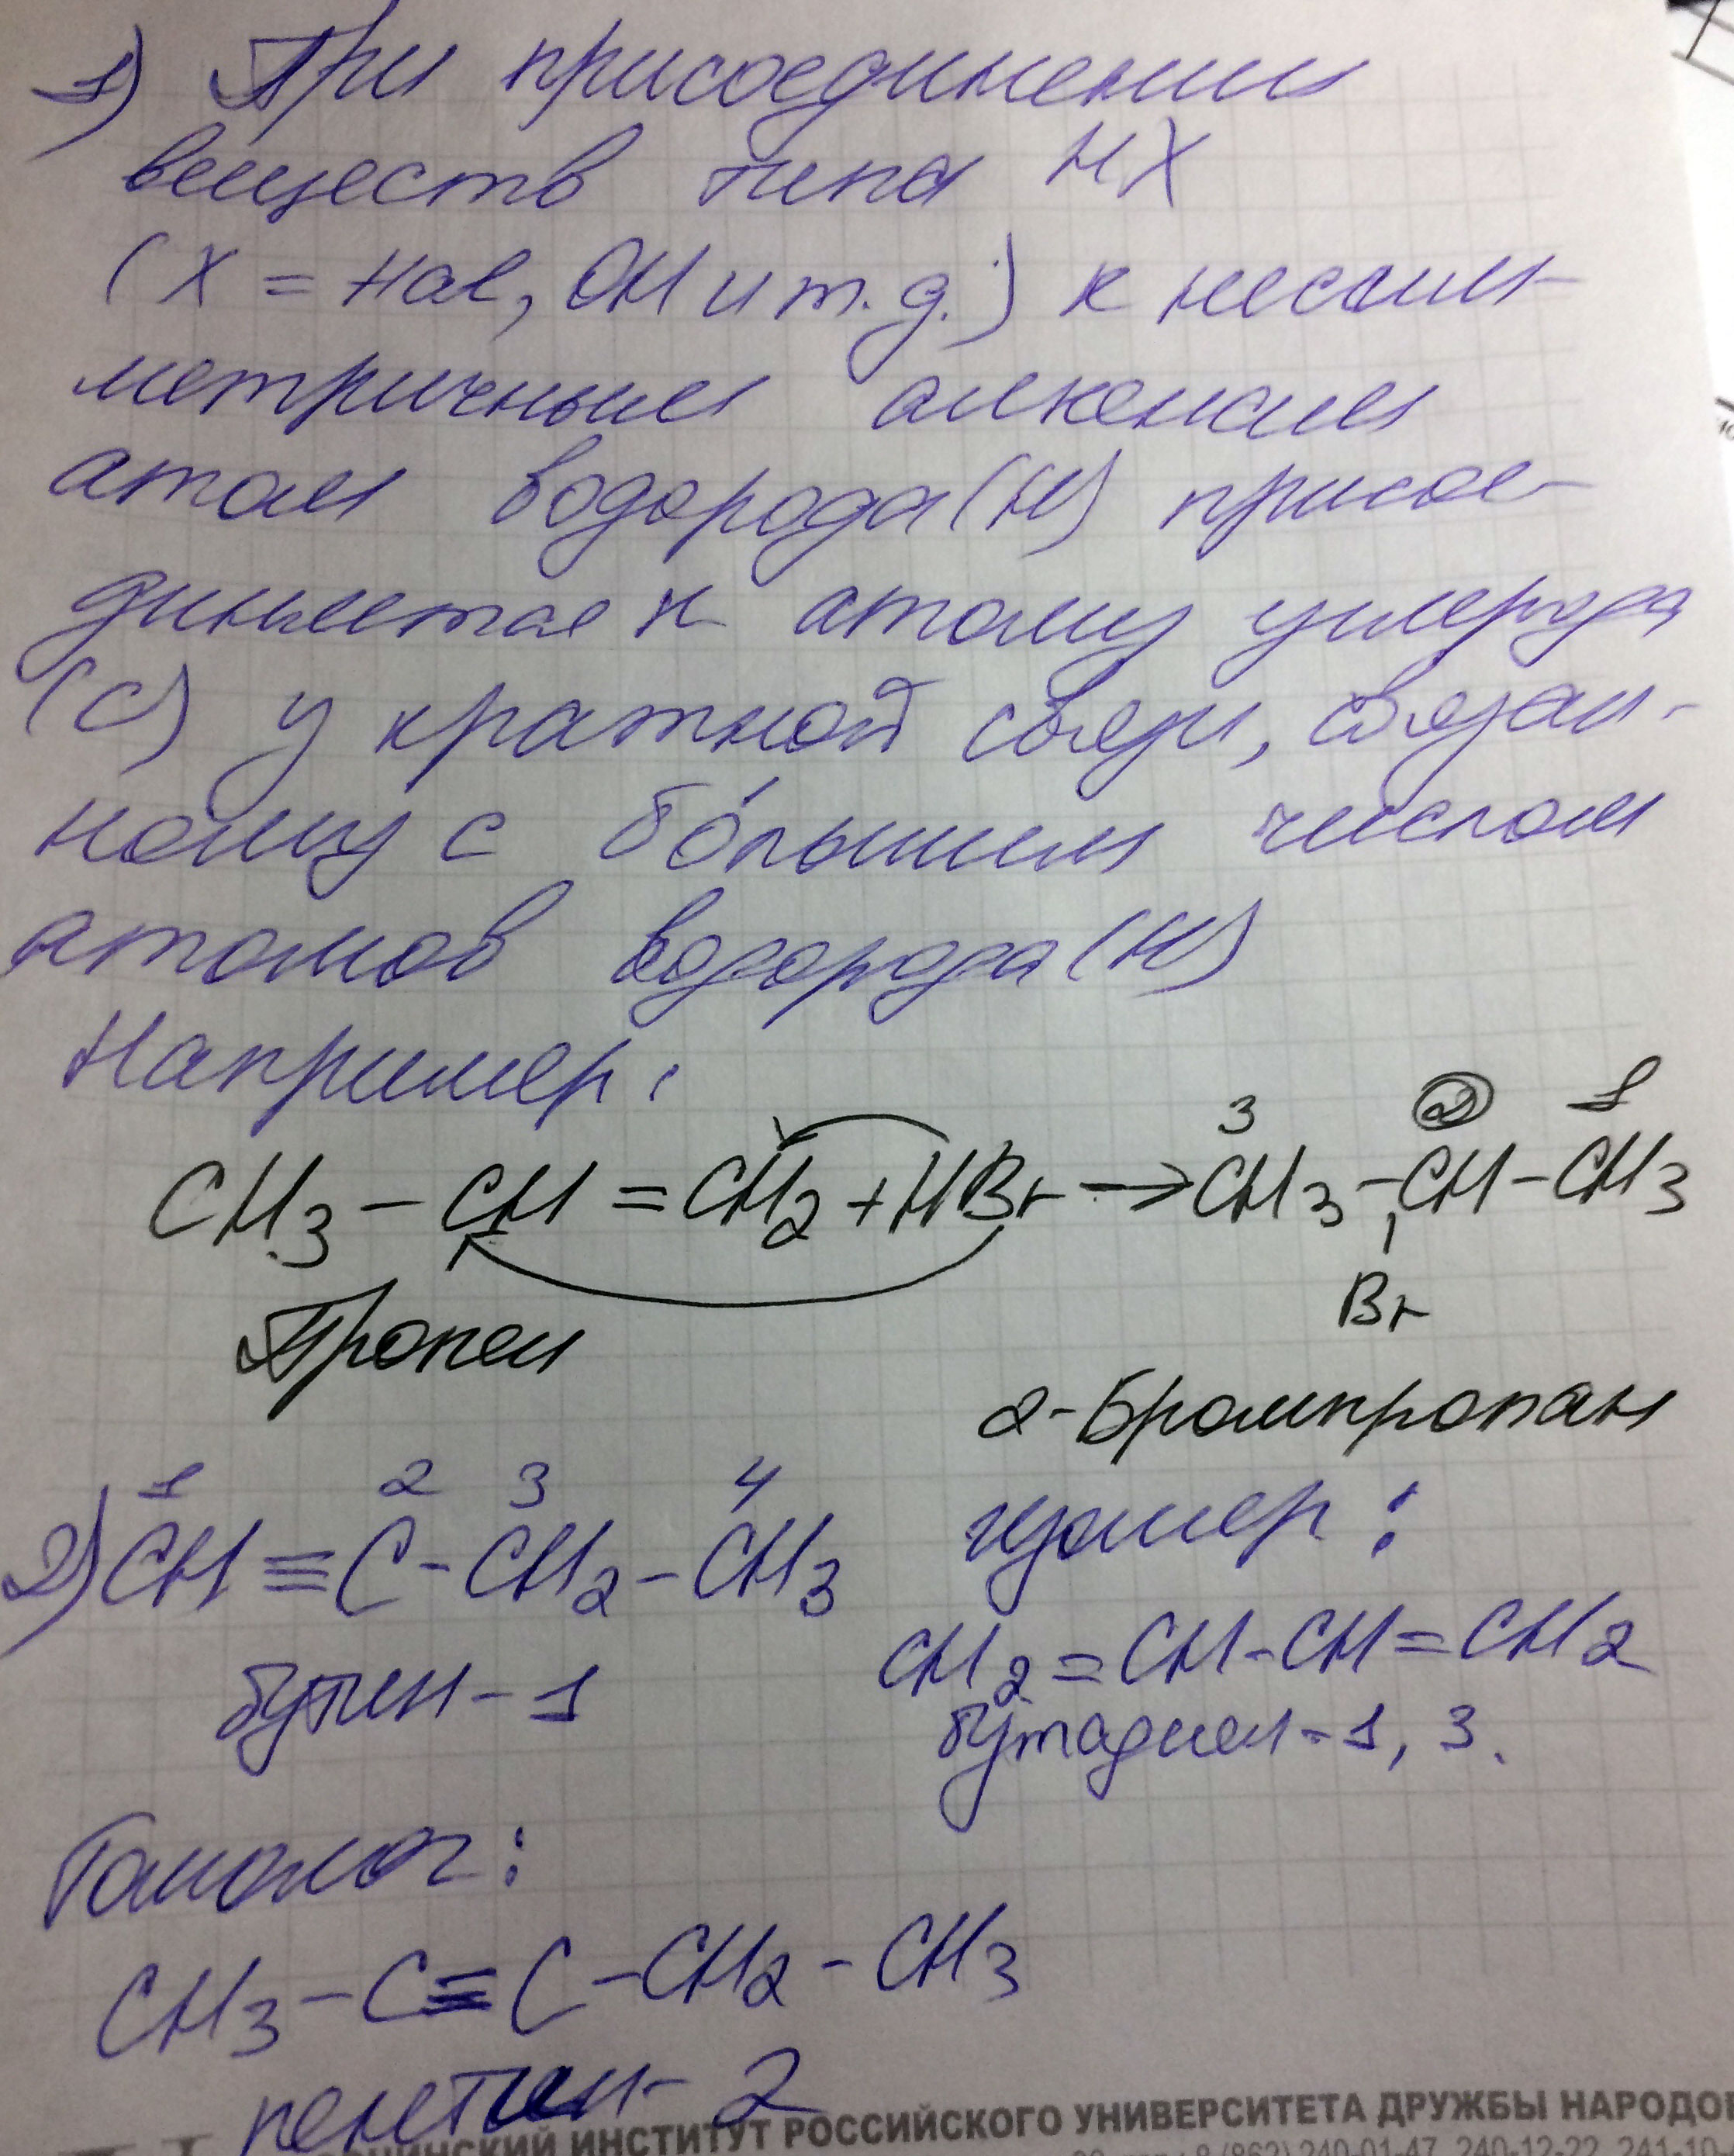 1) При присоединении
веществ типа HX
(X = Hal, OH и т.д.) к несим-
метричным алкенам
атом водорода (H) присое-
диняется к атому углерода
(C) у кратной связи, связан-
ному с бо́льшим числом
атомов водорода (H)
Например:
3 2 1
CH3 - CH = CH2 + HBr → CH3 - CH - CH3
Br
Пропен
2-Бромпропан
1 2 3 4
2) CH ≡ C - CH2 - CH3
бутин - 1
изомер:
CH2 = CH - CH = CH2
бутадиен - 1, 3.
Гомолог:
CH3 - C ≡ C - CH2 - CH3
пентин - 2
ИНСТИТУТ РОССИЙСКОГО УНИВЕРСИТЕТА ДРУЖБЫ НАРОДО
8 (862) 240-01-47, 240-12-22, 241-10